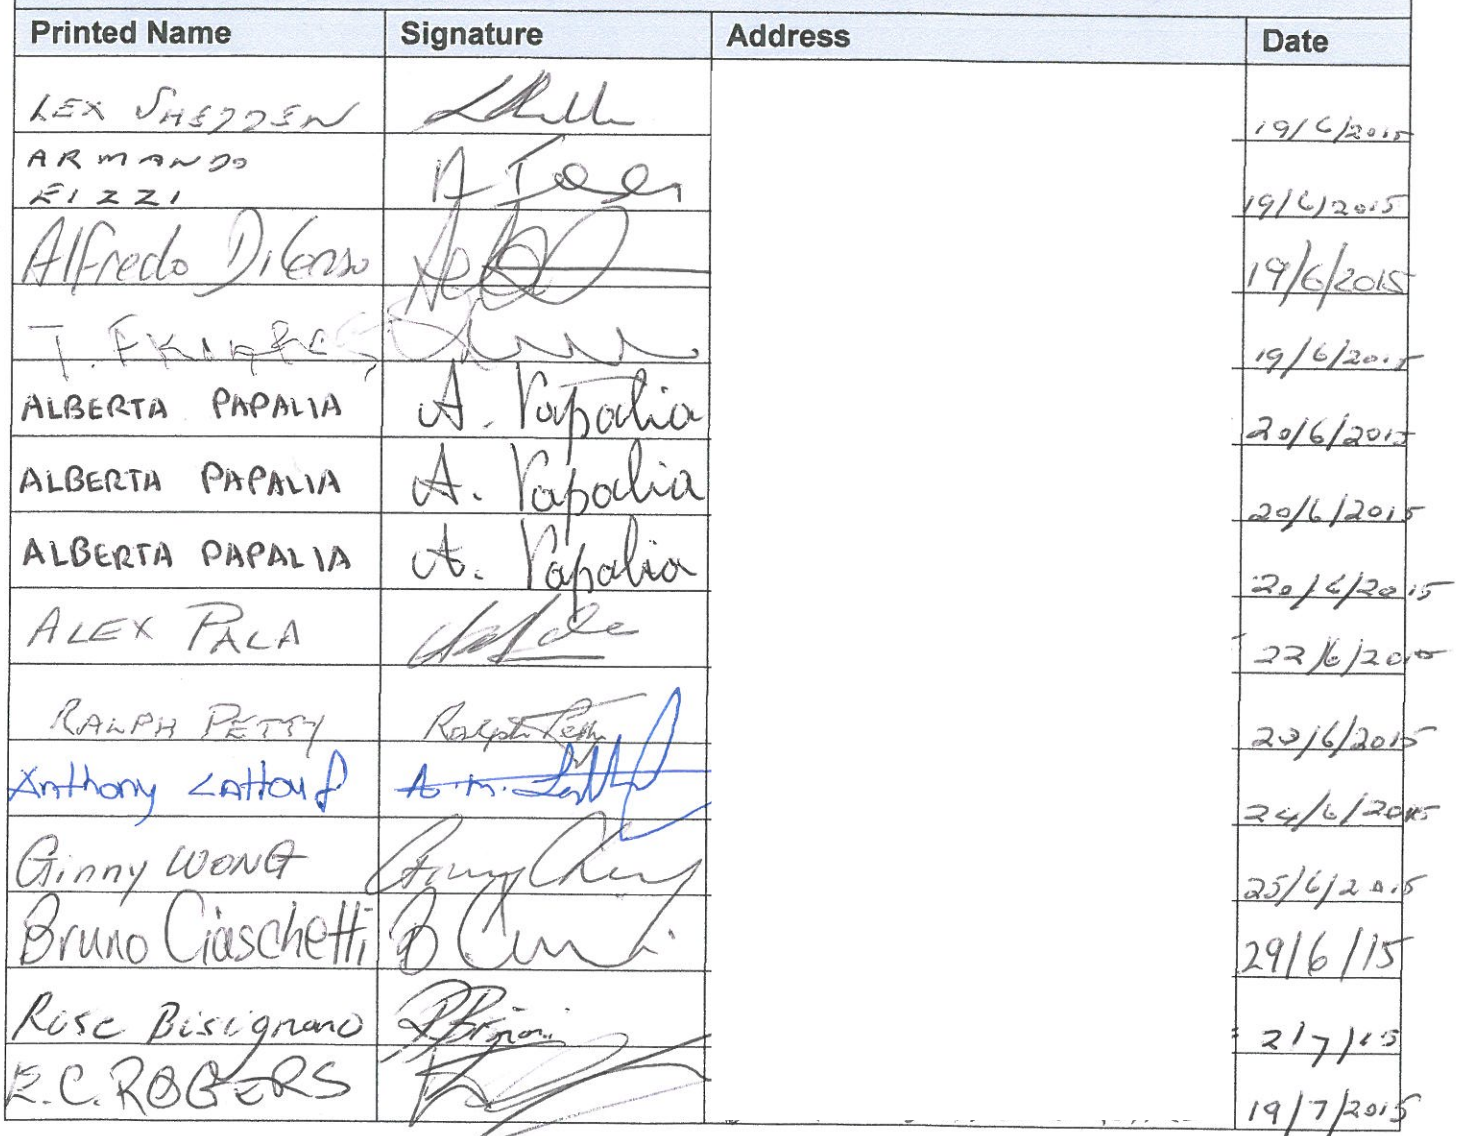 Printed Name Signature Address Date
LEX SHEDDEN 19/6/2015
ARMANDO
EIZZI 19/6/2015
Alfredo DiCenso 19/6/2015
T. 19/6/2015
ALBERTA PAPALIA A. Papalia 20/6/2015
ALBERTA PAPALIA A. Papalia 20/6/2015
ALBERTA PAPALIA A. Papalia 20/6/2015
ALEX PALA 22/6/2015
RALPH PETTY Ralph Petty 23/6/2015
Anthony LAttouf A.M. 24/6/2015
Ginny WONG Ginny 25/6/2015
Bruno Ciaschetti B 29/6/15
Rose Bisignano 2/7/15
E.C. ROGERS 19/7/2015